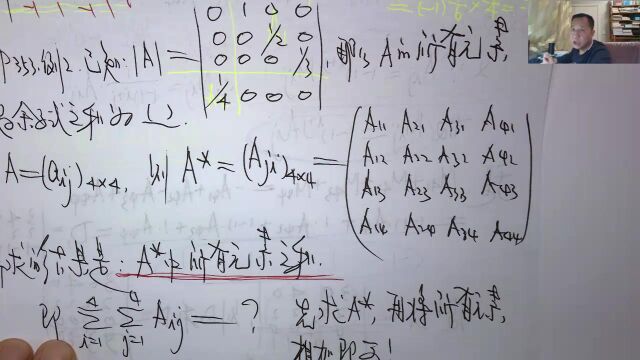 = (-1)
P353.例2.已知:|A|= | 0 1 0 0 | 那么A的所有元素
0 0 1/2 0
0 0 0 1/3
1/4 0 0 0
余子式之和为( ).
A=(aij)4×4, 则 A*=(Aji)4×4=
A11 A21 A31 A41
A12 A22 A32 A42
A13 A23 A33 A43
A14 A24 A34 A44
求的结果是: A*中所有元素之和.
即 4∑i=1 4∑j=1 Aij = ? 先求A*, 再将所有元素,
相加即可!